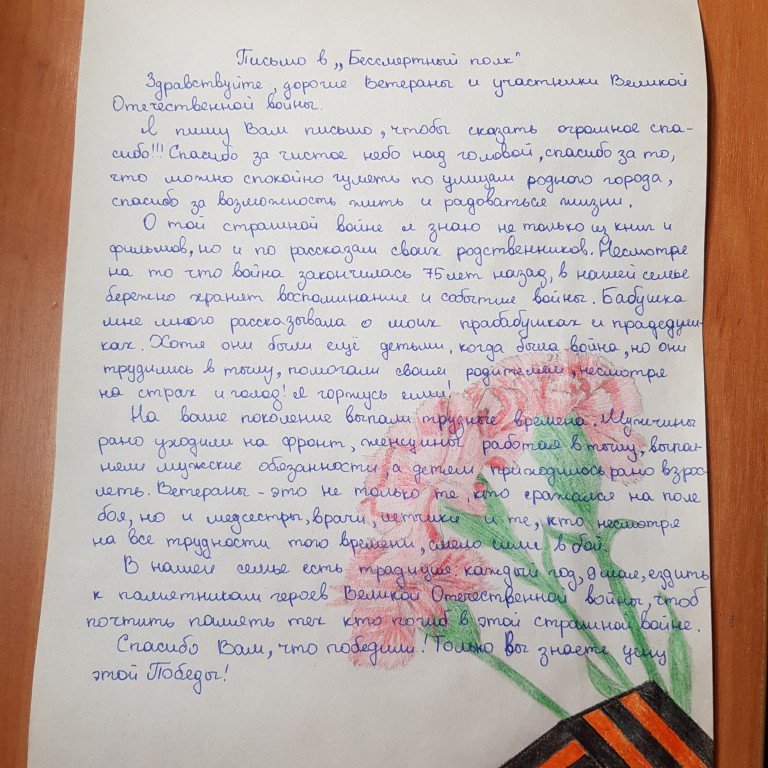 Письмо в „Бессмертный полк"
Здравствуйте, дорогие Ветераны и участники Великой
Отечественной войны.
Я пишу Вам письмо, чтобы сказать огромное спа-
сибо!!! Спасибо за чистое небо над головой, спасибо за то,
что можно спокойно гулять по улицам родного города,
спасибо за возможность жить и радоваться жизни.
О той страшной войне я знаю не только из книг и
фильмов, но и по рассказам своих родственников. Несмотря
на то что война закончилась 75 лет назад, в нашей семье
бережно хранят воспоминание и событие войны. Бабушка
мне много рассказывала о моих прабабушках и прадедуш-
ках. Хотя они были ещё детьми, когда была война, но они
трудились в тылу, помогали своим родителям, несмотря
на страх и голод! Я горжусь ими!
На ваше поколение выпали трудные времена. Мужчины
рано уходили на фронт, женщины работая в тылу, выпол-
няли мужские обезанности, а детям приходилось рано взрос-
леть. Ветераны - это не только те, кто сражался на поле
боя, но и медсестры, врачи, летчики и те, кто несмотря
на все трудности того времени, смело шли в бой.
В нашей семье есть традиция каждый год, 9 мая, ездить
к памятникам героев Великой Отечественной войны, чтоб
почтить память тех кто погиб в этой страшной войне.
Спасибо Вам, что победили! Только вы знаете цену
этой Победы!